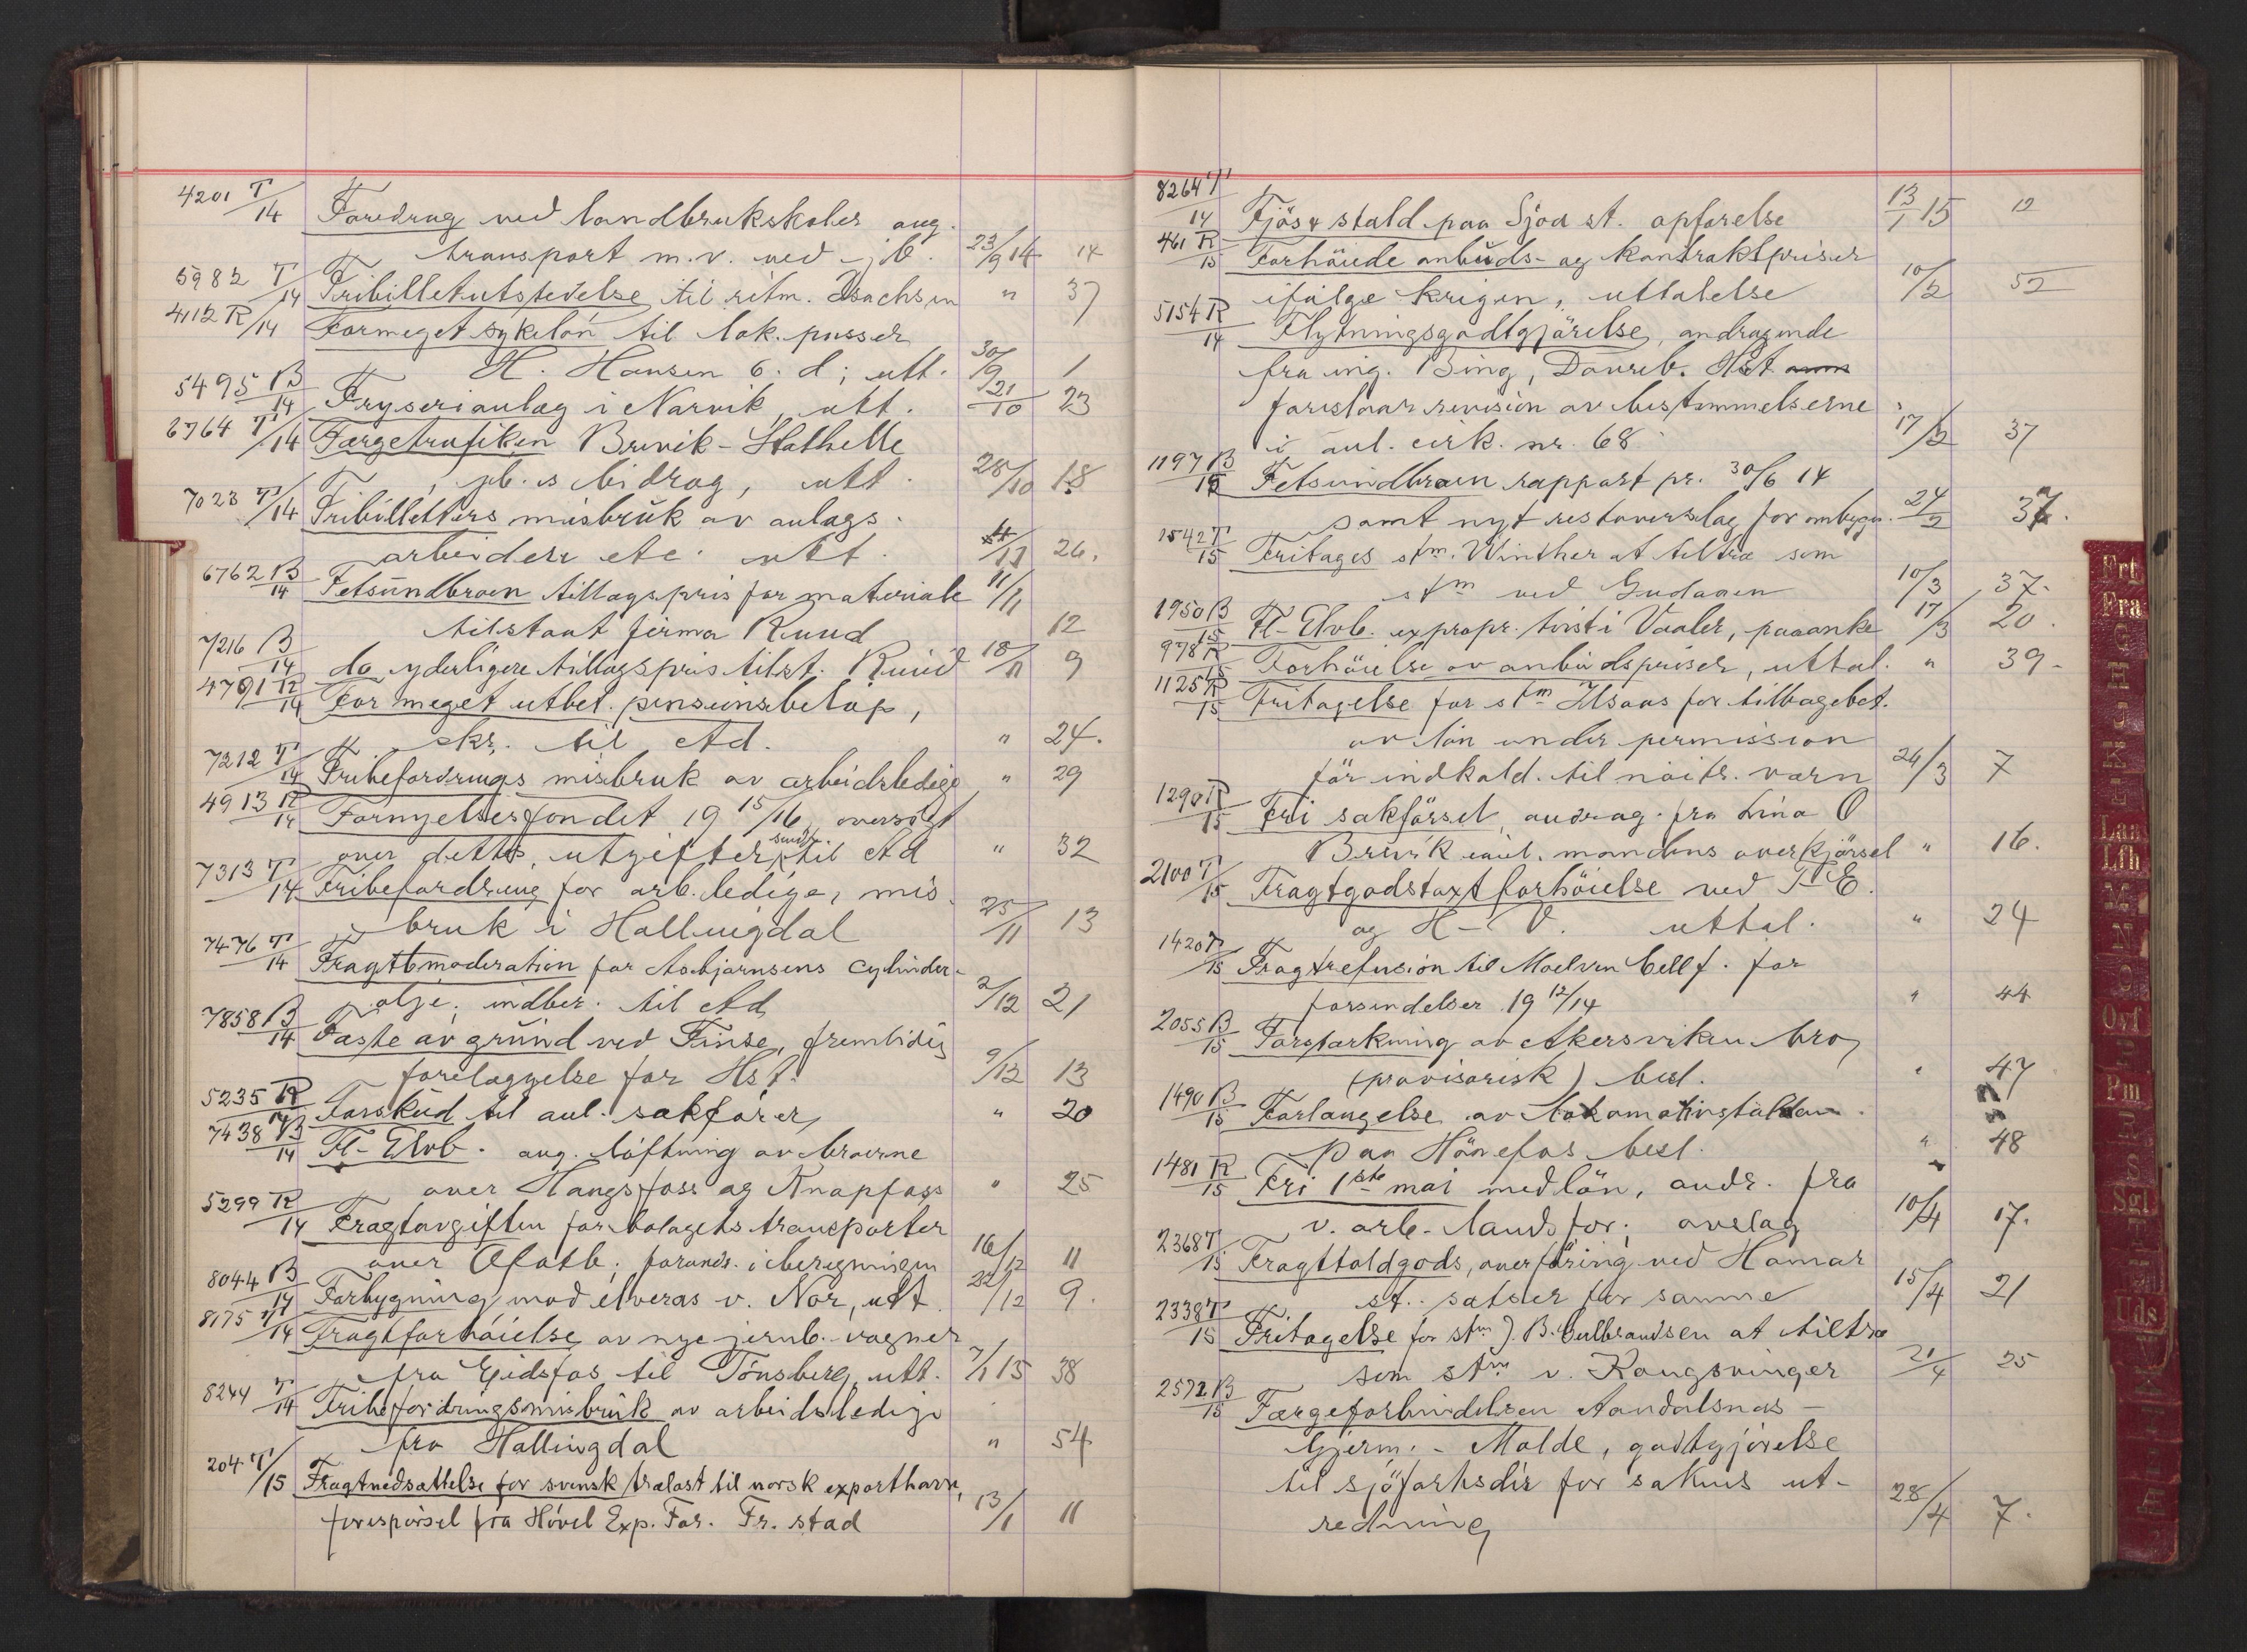 4201 T/14 Foredrag ved landbrukskoler ang.
transport m.v. ved jb. 23/9 14 14
5982 T/14 Fribilletutstedelse til ritm. Isachsen " 37
4112 R/14 Formeget sykelön til lok. pusser
H. Hansen 6. d; utt. 30/9 1
5495 B/14 Fryserianlæg i Narvik, utt. 21/10 23
6764 T/14 Færgetrafiken Brevik-Stathelle
jb.s bidrag, utt. 28/10 18
7023 T/14 Fribilletters misbruk av anlægs-
arbeidere etc. utt. 4/11 26.
6762 B/14 Fetsundbroen tillægspris for materiale
tilstaat firma Ruud 11/11 12
7216 B/14 do yderligere tillægspris tilst. Ruud 18/11 9
4791 R/14 For meget utbet. pensionsbelöp,
skr. til Ad. " 24.
7212 T/14 Fribefordrings misbruk av arbeidsledige " 29
4913 R/14 Fornyelsesfondet 19 15/16, oversigt
over dettes utgifter sendt til Ad " 32
7313 T/14 Fribefordring for arb.ledige, mis-
bruk i Hallingdal 25/11 13
7476 T/14 Fragtmoderation for Asbjørnsens cylinder-
olje, indber. til Ad 2/12 21
7858 B/14 Fæste av grund ved Finse, fremtidig
forelæggelse for Hst. 9/12 13
5235 R/14 Forskud til anl. sakförer, " 20
7438 B/14 Fl-Elvb. ang. löftning av broerne
over Haugsfoss og Knapfoss " 25
5299 R/14 Fragtavgiften for bolagets transporter
over Ofotb. forandr. i beregningen 16/12 11
8044 B/14 Forbygning mod elveras v. Nor, utt. 22/12 9.
8175 T/14 Fragtforhöielse av nye jernb. vogner
fra Eidsfos til Tönsberg, utt. 7/1 15 38
8244 T/14 Fribefordringsmisbruk av arbeidsledige
fra Hallingdal " 54
204 T/15 Fragtnedsættelse for svensk trælast til norsk exporthavn,
forespörsel fra Hövel Exp. For. Fr.stad 13/1 11
8264 T/14 Fjös & stald paa Sjoa st. opførelse 13/1 15 12
461 R/15 Forhöiede anbuds- og kontraktspriser
ifölge krigen, uttalelse 10/2 52
5154 R/14 Flytningsgodtgjörelse, andragende
fra ing. Bing, Dovreb. Hst
foreslaar revision av bestemmelserne
i anl. cirk. nr. 68 17/2 37
1197 B/15 Fetsundbroen rapport pr. 30/6 14
samt nyt restoverslag for ombygn. 24/2 37.
1542 T/15 Fritages stm. Winther at tiltræ som
stm ved Gudaaen 10/3 37.
1950 B/15 Fl-Elvb. expropr. tvist i Vaaler, paaanke 17/3 20.
978 R/15 Forhöielse av anbudspriser, uttal. " 39.
1125 R/15 Fritagelse for stm Ilsaas for tilbagebet.
av lön under permission
för indkald. til nöitr.værn 24/3 7
1290 R/15 Fri sakförsel, andrag. fra Lina O
Brevik mandens overkjörsel " 16.
2100 T/15 Fragtgodstaxt forhöielse ved T-E.
og H-V. uttal. " 24
1420 R/15 Fragtrefusion til Moelven cellf. for
forsendelser 19 12/14 " 44
2055 B/15 Forsterkning av Akersviken bro
(provisorisk) besl. " 47
1490 B/15 Forlængelse av lokomotivstalden
paa Hönefos besl. " 48
1481 R/15 Fri 1ste mai med lön, andr. fra
v. arb. landsfor., avslag 10/4 17.
2368 T/15 Fragttoldgods, overföring ved Hamar
st. satser for samme 15/4 21
2338 T/15 Fritagelse for stm J. B. Gulbrandsen at tiltræ
som stm v. Kongsvinger 21/4 25
2572 B/15 Færgeforbindelsen Aandalsnes -
Gjerm. - Molde, godtgjörelse
til sjöfartsdir for sakens ut-
redning 28/4 7.
Frt
Fra
G
H
Laa
Lfh
M
N
O
Ovf
P
Pm
R
S
Sgl
T
Uds